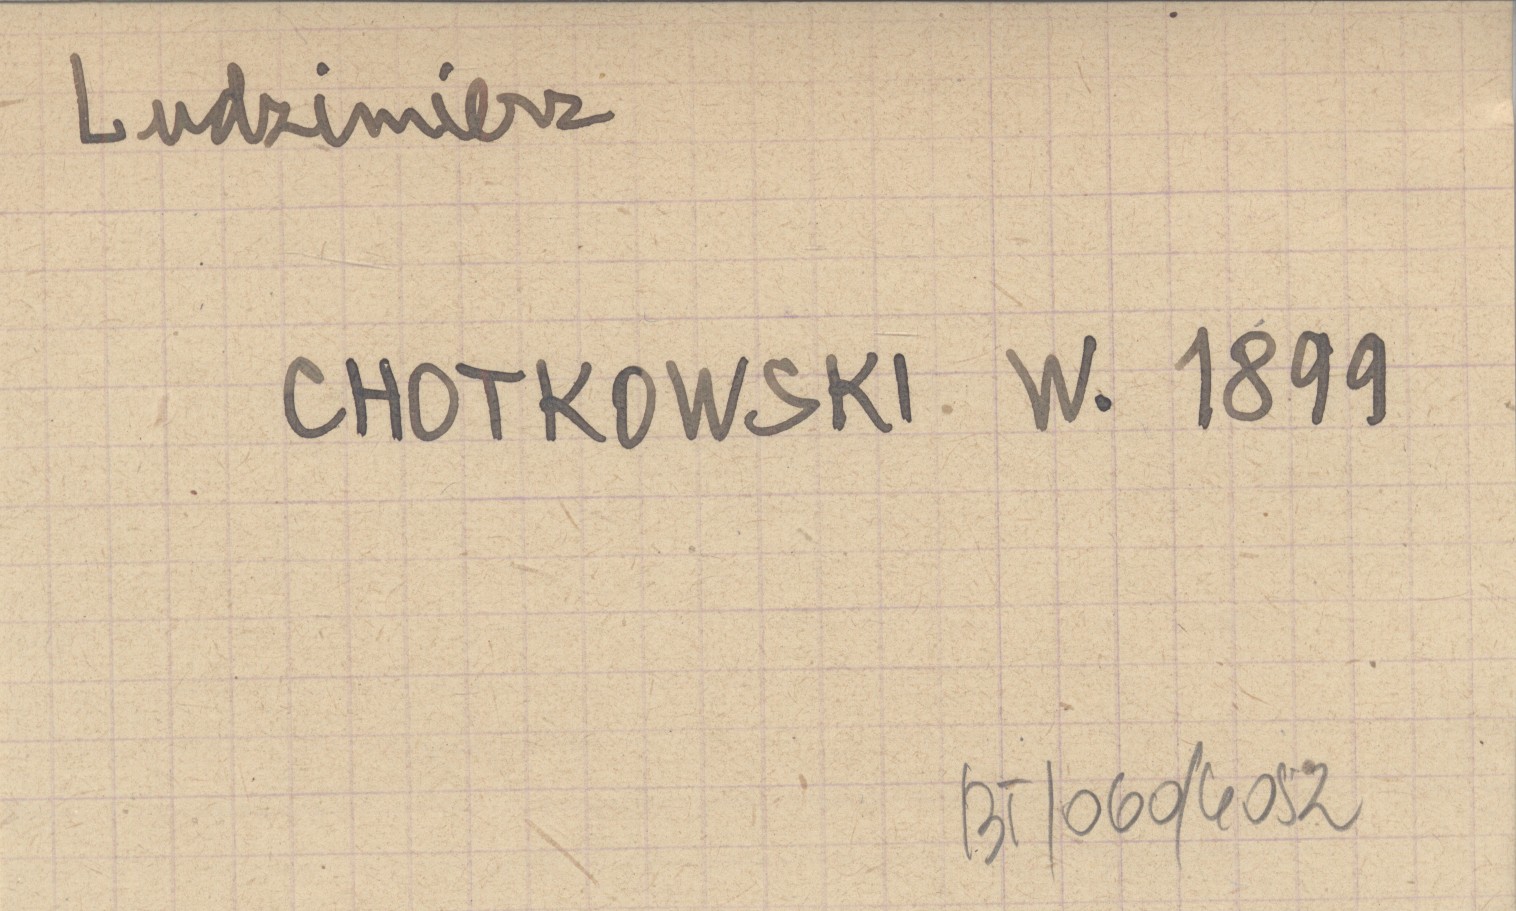 Ludzimierz
CHOTKOWSKI W. 1899
BT/060/6052